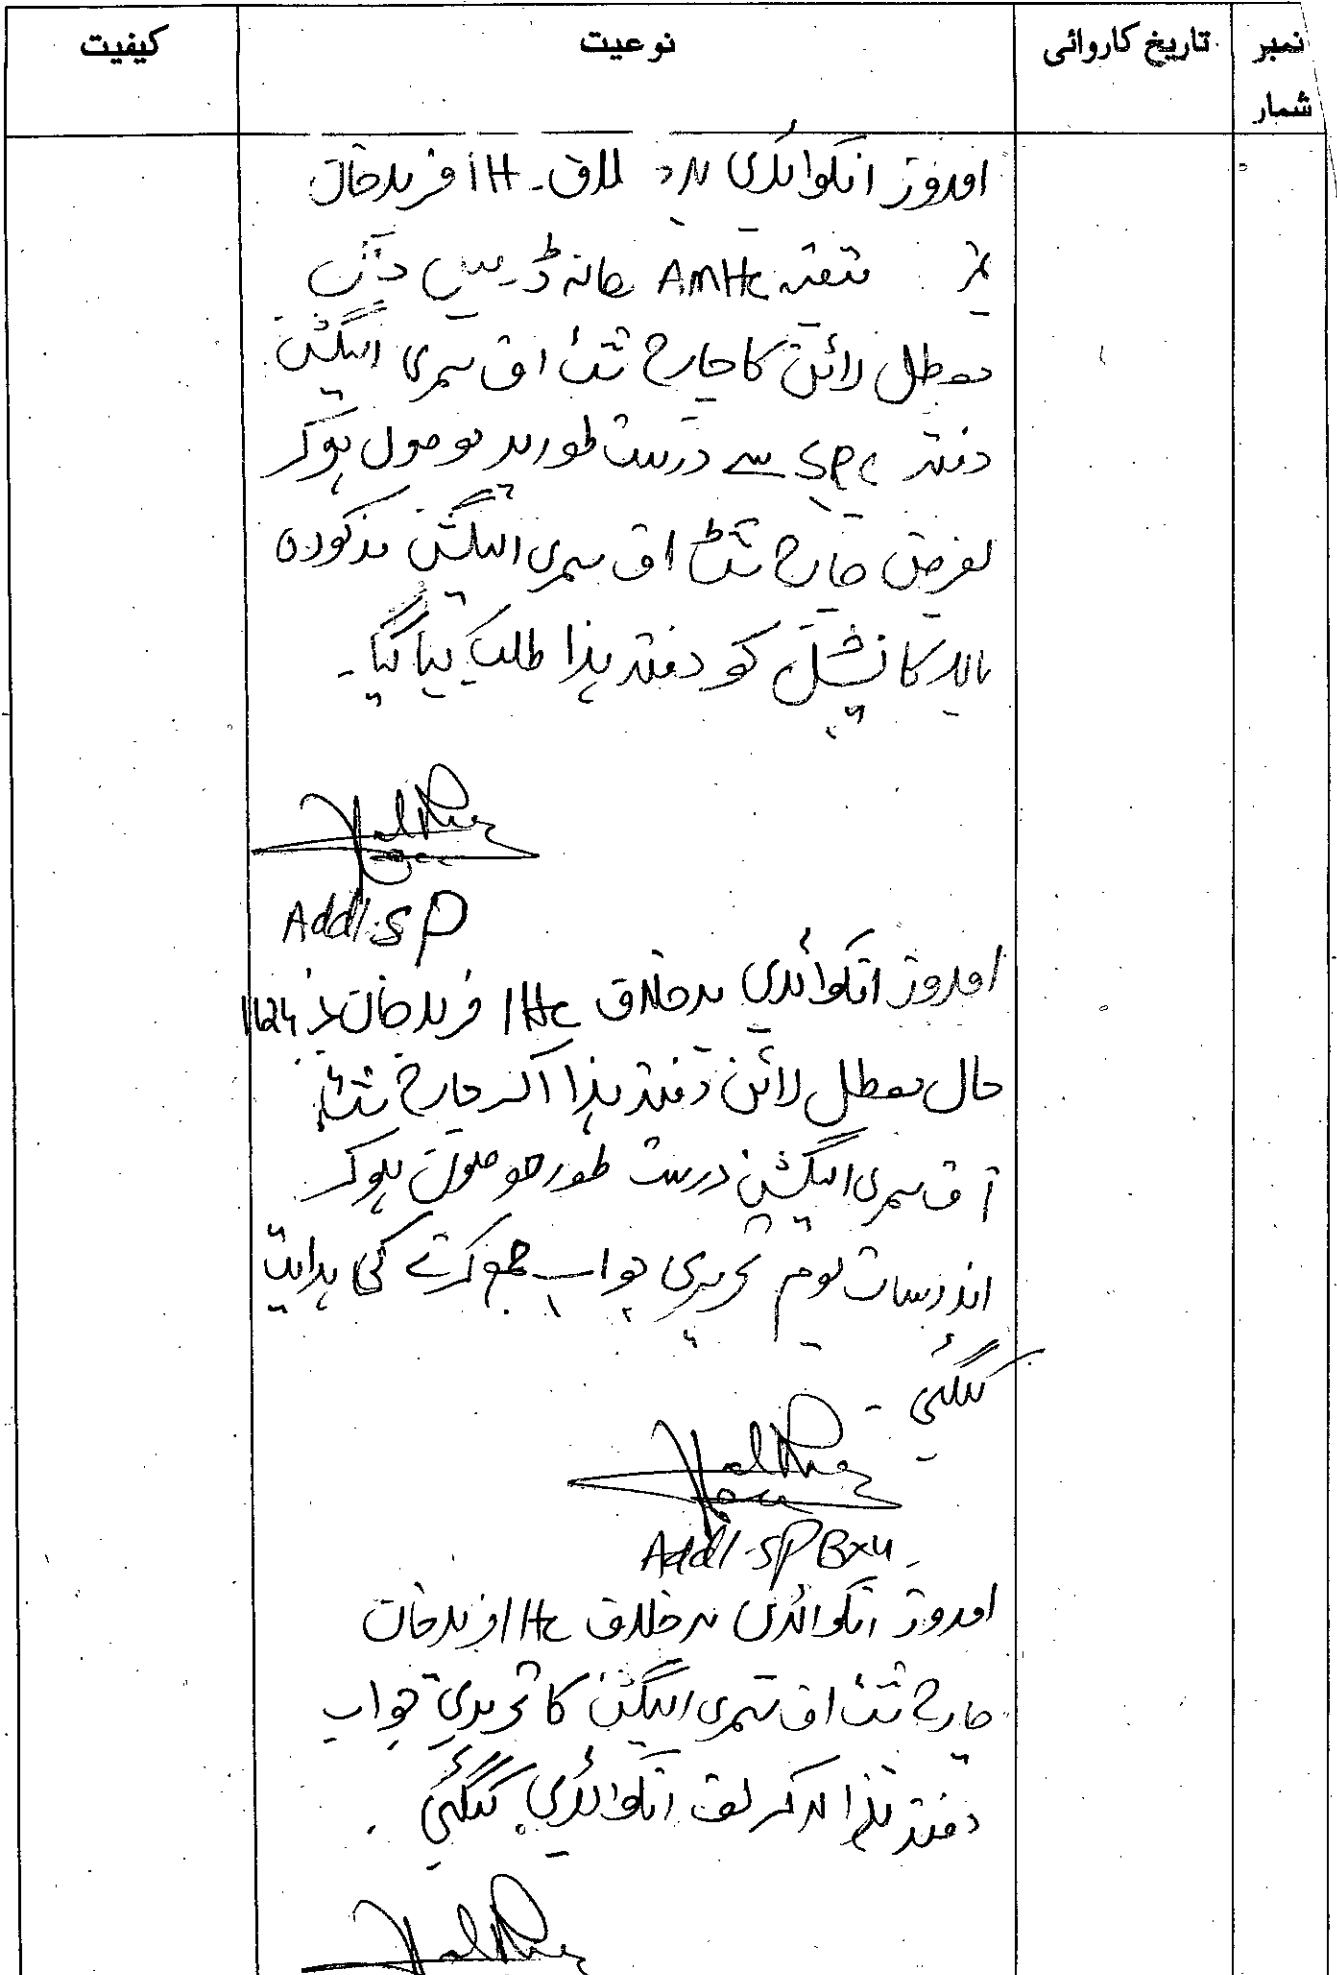 نمبر شمار
تاریخ کاروائی
نوعیت
کیفیت
امروز انکوائری برخلاف IHC فرید خان
متعینہ AMHC تھانہ ڈومیل حال
معطل لائن کا چارج شیٹ اف سمری الیگیشن
دفتر SPC سے درست طور پر موصول ہوکر
بغرض چارج شیٹ اف سمری الیگیشن مذکورہ
بالا کانسٹیبل کو دفتر ہذا طلب کیا گیا۔
Addl: SP
امروز انکوائری برخلاف IHC فرید خان نمبر 1624
حال معطل لائن دفتر ہذا آکر چارج شیٹ
آف سمری الیگیشن درست طور موصول ہوکر
اندر سات یوم تحریری جواب جمع کرنے کی ہدایت
کی گئی۔
Addl: SP Bxu
امروز انکوائری برخلاف IHC فرید خان
چارج شیٹ اف سمری الیگیشن کا تحریری جواب
دفتر ہذا لاکر لف انکوائری کی گئی۔